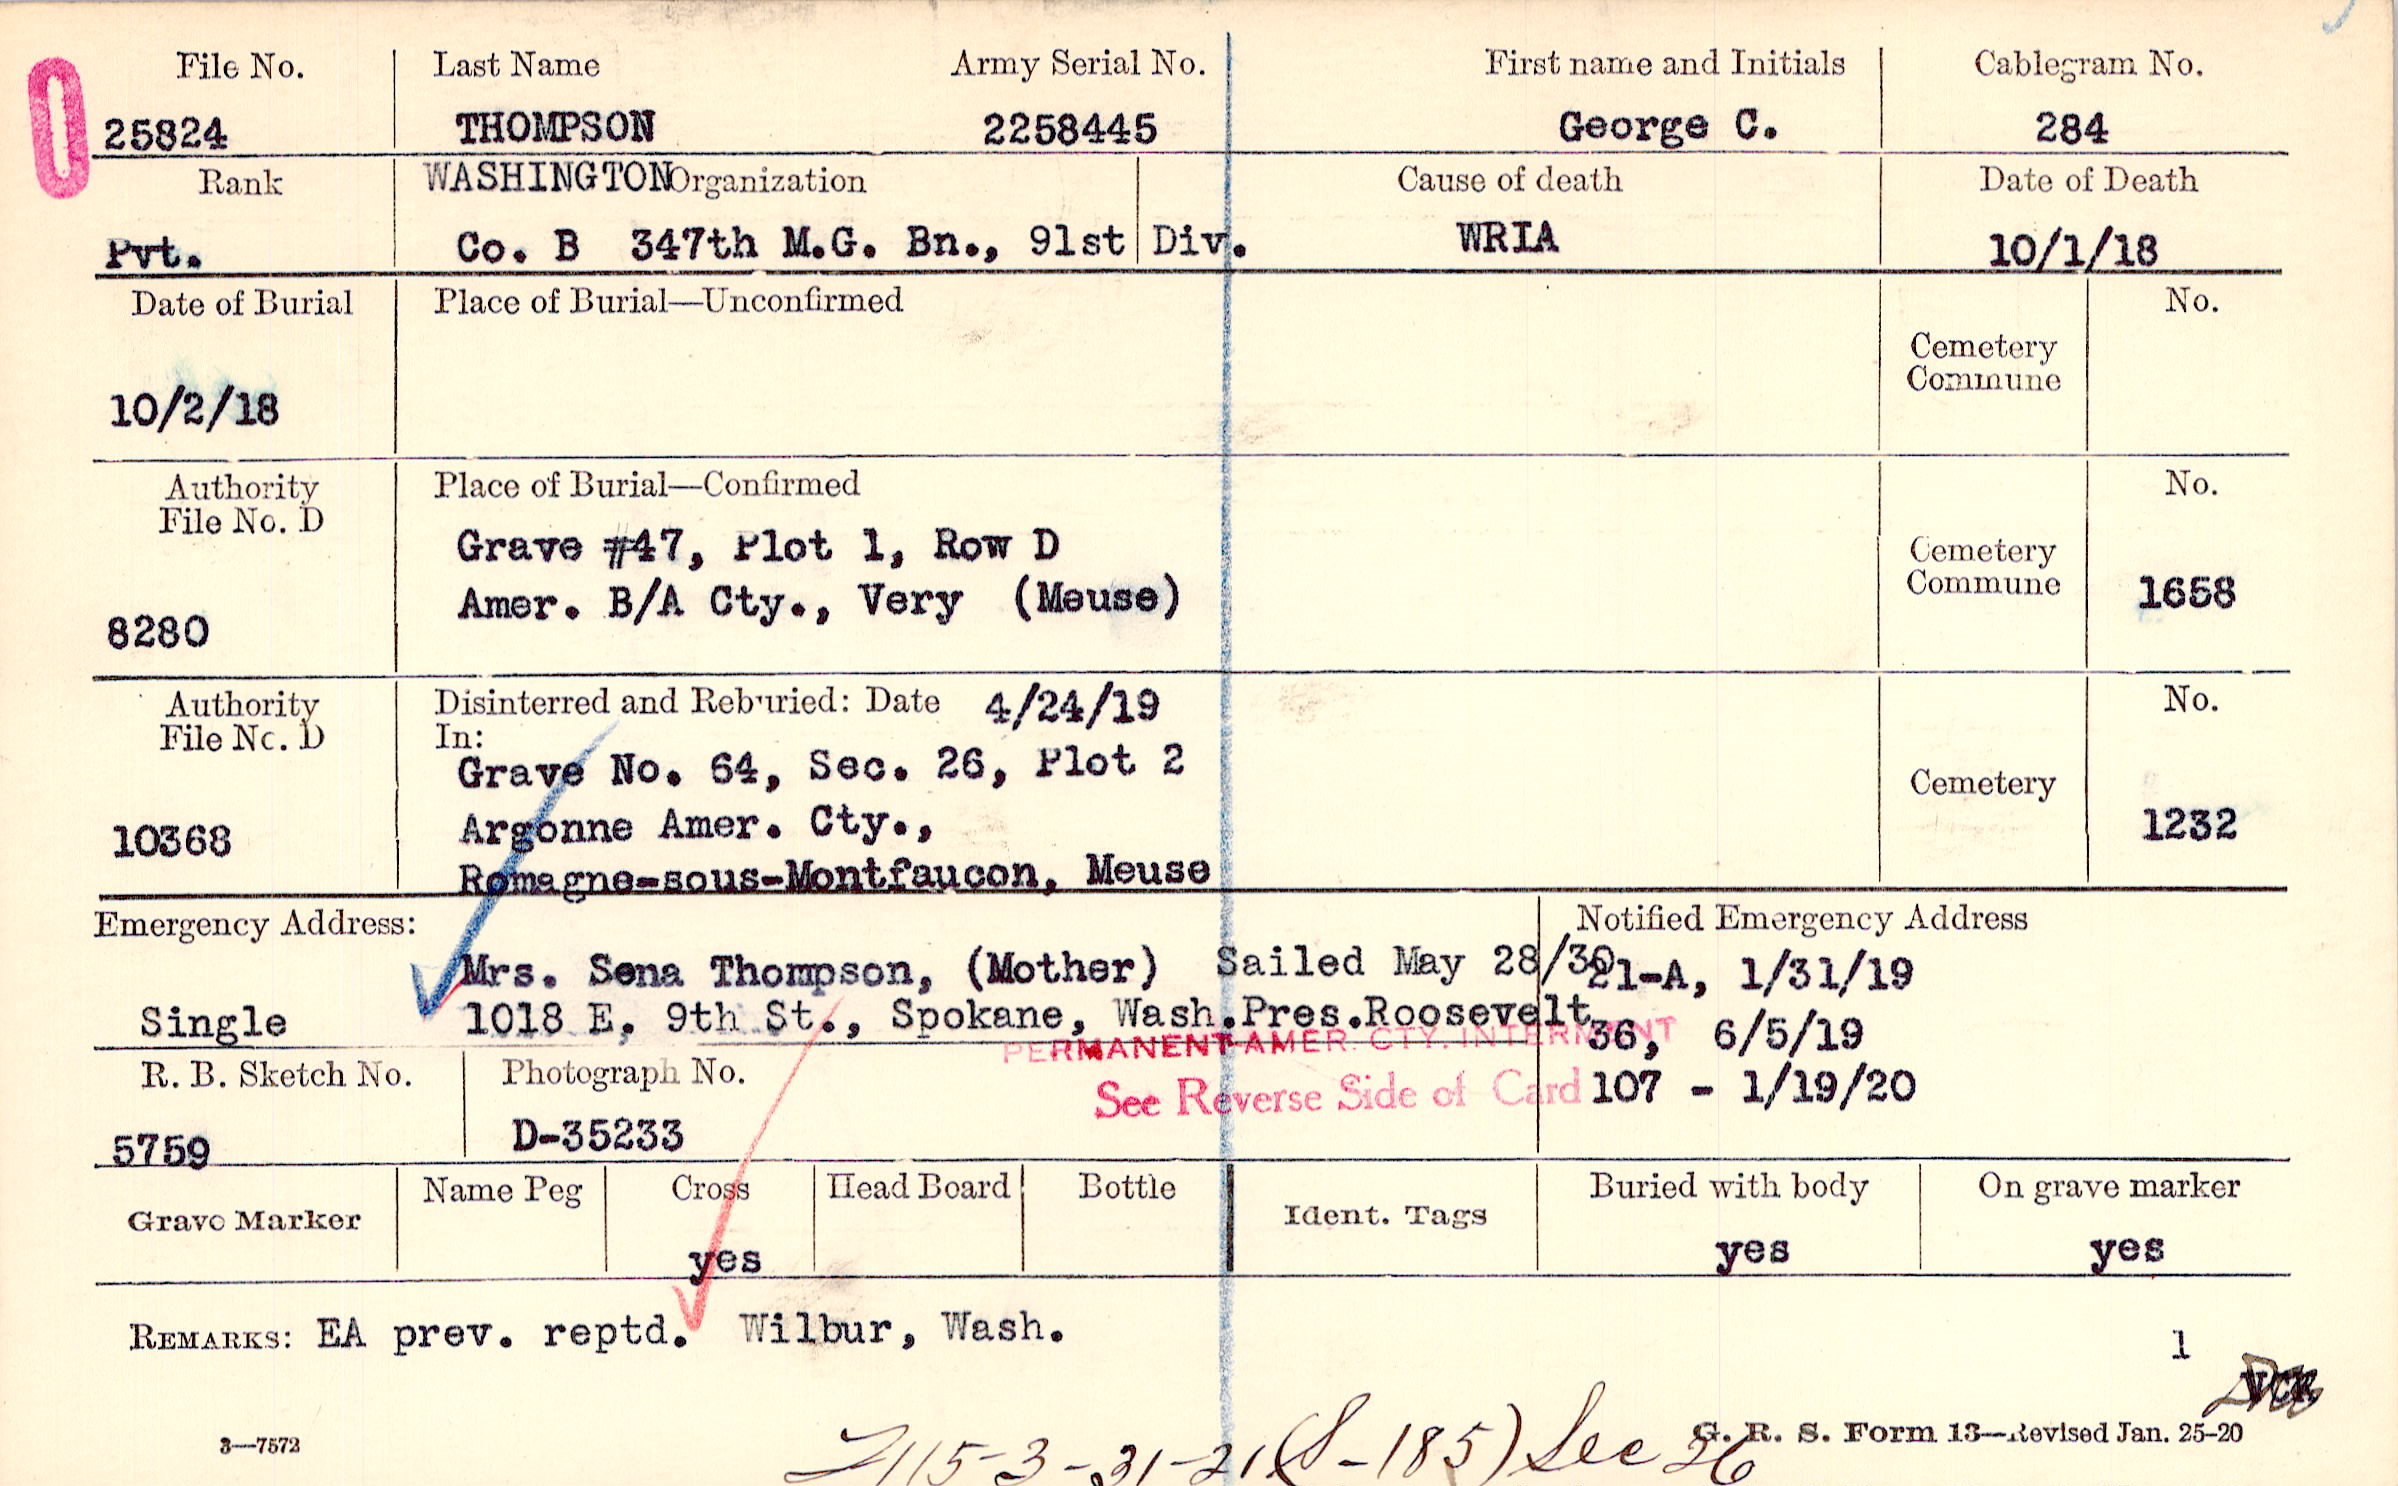 File No. Last Name Army Serial No. First name and Initials Cablegram No.
25824 THOMPSON 2258445 George C. 284
Rank WASHINGTON Organization Cause of death Date of Death
Pvt. Co. B 347th M.G. Bn., 91st Div. WRIA 10/1/18
Date of Burial Place of Burial—Unconfirmed No.
Cemetery
Commune
10/2/18
Authority Place of Burial—Confirmed No.
File No. D
Grave #47, Plot 1, Row D
Cemetery
Commune 1658
Amer. B/A Cty., Very (Meuse)
8280
Authority Disinterred and Reburied: Date 4/24/19 No.
File No. D In:
Grave No. 64, Sec. 26, Plot 2
Cemetery
10368 Argonne Amer. Cty., 1232
Romagne-sous-Montfaucon, Meuse
Emergency Address: Notified Emergency Address
Mrs. Sena Thompson, (Mother) Sailed May 28/30 21-A, 1/31/19
Single 1018 E. 9th St., Spokane, Wash. Pres.Roosevelt
36, 6/5/19
PERMANENT AMER. CTY. INTERMENT
R. B. Sketch No. Photograph No. See Reverse Side of Card 107 - 1/19/20
5759 D-35233
Grave Marker Name Peg Cross Head Board Bottle Ident. Tags Buried with body On grave marker
yes yes yes
REMARKS: EA prev. reptd. Wilbur, Wash. 1
3—7572 G. R. S. Form 13—Revised Jan. 25-20
115-3-31-21 (S-185) Sec 26